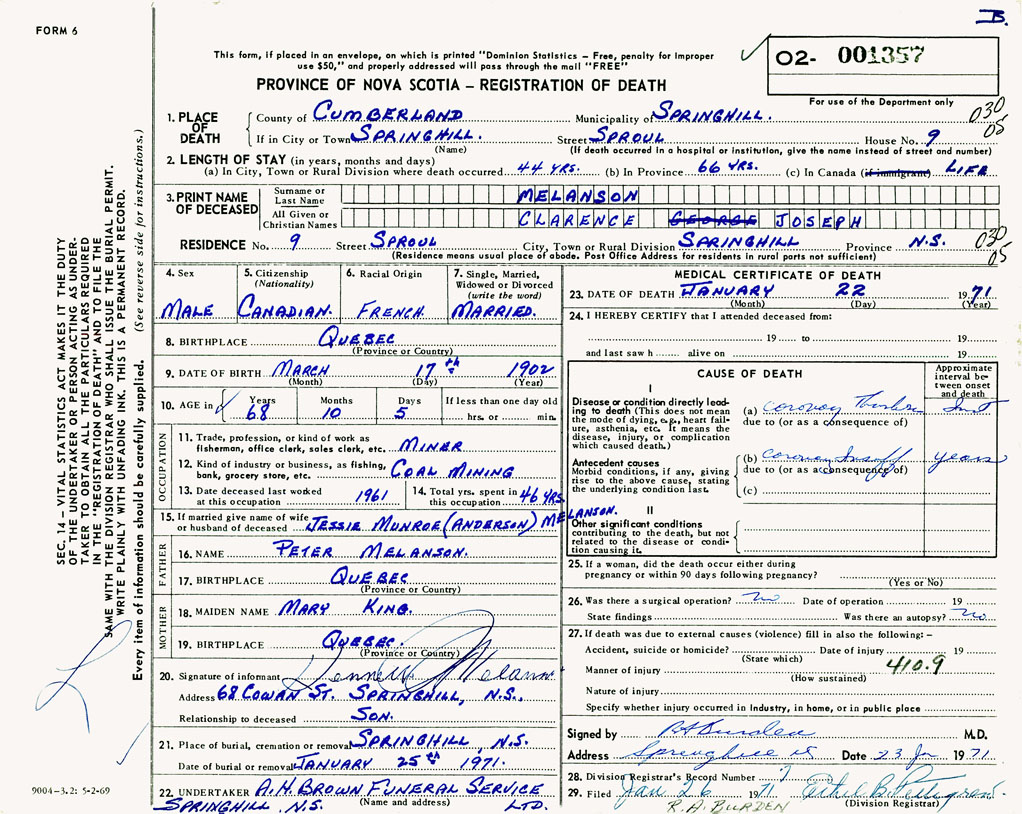 B.
FORM 6
This form, if placed in an envelope, on which is printed "Dominion Statistics – Free, penalty for improper
use $50," and properly addressed will pass through the mail "FREE"
O2- 001357
PROVINCE OF NOVA SCOTIA – REGISTRATION OF DEATH
For use of the Department only
1. PLACE OF DEATH
County of CUMBERLAND Municipality of SPRINGHILL. 030
If in City or Town SPRINGHILL. Street SPROUL House No. 9 05
(Name) (If death occurred in a hospital or institution, give the name instead of street and number)
2. LENGTH OF STAY (in years, months and days)
(a) In City, Town or Rural Division where death occurred 44 YRS. (b) In Province 66 YRS. (c) In Canada (if immigrant) LIFE
3. PRINT NAME OF DECEASED
Surname or Last Name MELANSON
All Given or Christian Names CLARENCE GEORGE JOSEPH
RESIDENCE No. 9 Street SPROUL City, Town or Rural Division SPRINGHILL Province N.S. 030
(Residence means usual place of abode. Post Office Address for residents in rural parts not sufficient) 05
4. Sex
MALE
5. Citizenship
(Nationality)
CANADIAN.
6. Racial Origin
FRENCH.
7. Single, Married,
Widowed or Divorced
(write the word)
MARRIED.
8. BIRTHPLACE QUEBEC
(Province or Country)
9. DATE OF BIRTH MARCH 17th 1902
(Month) (Day) (Year)
10. AGE in Years Months Days If less than one day old
68 10 5 hrs. or min.
OCCUPATION
11. Trade, profession, or kind of work as
fisherman, office clerk, sales clerk, etc. MINER
12. Kind of industry or business, as fishing,
bank, grocery store, etc. COAL MINING
13. Date deceased last worked
at this occupation 1961
14. Total yrs. spent in
this occupation 46 YRS.
15. If married give name of wife
or husband of deceased JESSIE MUNROE (ANDERSON) MELANSON.
FATHER
16. NAME PETER MELANSON.
17. BIRTHPLACE QUEBEC
(Province or Country)
MOTHER
18. MAIDEN NAME MARY KING.
19. BIRTHPLACE QUEBEC.
(Province or Country)
20. Signature of informant
Address 68 COWAN ST. SPRINGHILL, N.S.,
Relationship to deceased SON.
21. Place of burial, cremation or removal SPRINGHILL, N.S.
Date of burial or removal JANUARY 25th 1971.
22. UNDERTAKER A.H. BROWN FUNERAL SERVICE
SPRINGHILL, N.S. (Name and address) LTD.
MEDICAL CERTIFICATE OF DEATH
23. DATE OF DEATH JANUARY 22 1971
(Month) (Day) (Year)
24. I HEREBY CERTIFY that I attended deceased from:
19 to 19
and last saw h alive on 19
CAUSE OF DEATH
Approximate
interval be-
tween onset
and death
I
Disease or condition directly lead-
ing to death (This does not mean
the mode of dying, e.g., heart fail-
ure, asthenia, etc. It means the
disease, injury, or complication
which caused death.)
(a)
due to (or as a consequence of)
Antecedent causes
Morbid conditions, if any, giving
rise to the above cause, stating
the underlying condition last.
(b) years
due to (or as a consequence of)
(c)
II
Other significant conditions
contributing to the death, but not
related to the disease or condi-
tion causing it.
25. If a woman, did the death occur either during
pregnancy or within 90 days following pregnancy?
(Yes or No)
26. Was there a surgical operation? no Date of operation 19
State findings Was there an autopsy? no
27. If death was due to external causes (violence) fill in also the following: –
Accident, suicide or homicide? Date of injury 19
(State which)
Manner of injury 410.9
(How sustained)
Nature of injury
Specify whether injury occurred in Industry, in home, or in public place
Signed by RA Burden M.D.
Address Springhill NS Date 23 Jan 1971
28. Division Registrar's Record Number 7
29. Filed Jan 26 1971
R.A. BURDEN (Division Registrar)
SEC. 14 – VITAL STATISTICS ACT MAKES IT THE DUTY
OF THE UNDERTAKER OR PERSON ACTING AS UNDER-
TAKER TO OBTAIN ALL THE PARTICULARS REQUIRED
IN THE "REGISTRATION OF DEATH" AND TO FILE THE
SAME WITH THE DIVISION REGISTRAR WHO SHALL ISSUE THE BURIAL PERMIT.
WRITE PLAINLY WITH UNFADING INK. THIS IS A PERMANENT RECORD.
Every item of information should be carefully supplied. (See reverse side for instructions.)
9004-3.2: 5-2-69